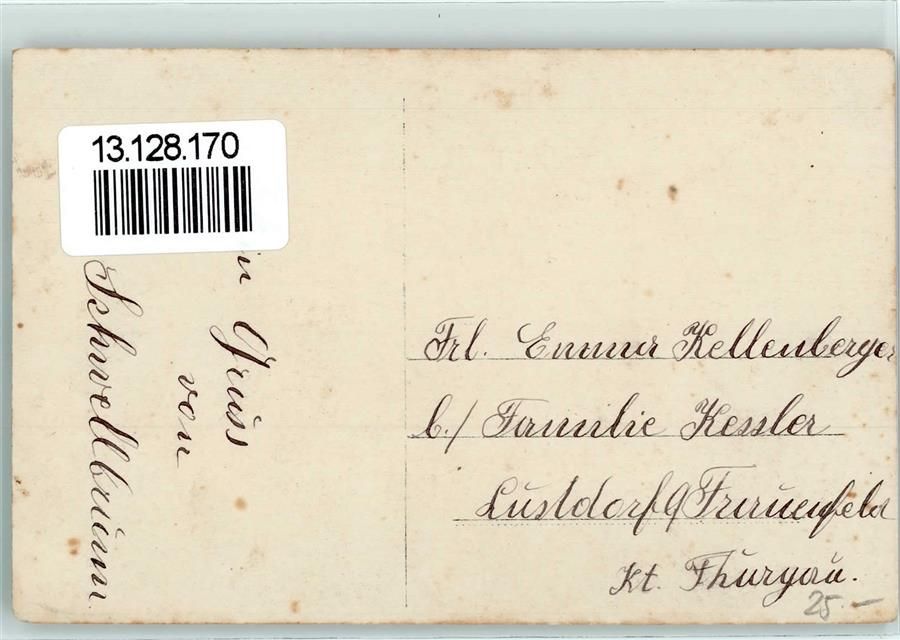 13.128.170
Gruss
von
Schwellbrunn.
Frl. Emma Kellenberger
b./ Familie Kessler
Lustdorf b/ Frauenfeld
Kt. Thurgau.
25.-